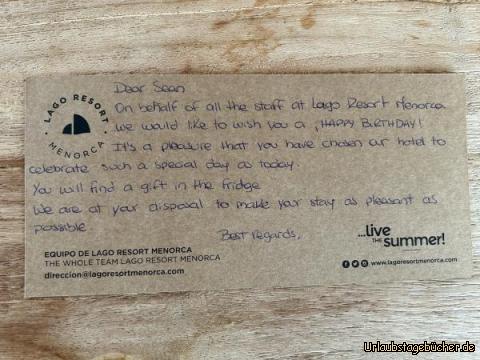 LAGO RESORT
MENORCA
Dear Sean
On behalf of all the staff at Lago Resort Menorca
we would like to wish you a ¡HAPPY BIRTHDAY!
It's a pleasure that you have chosen our hotel to
celebrate such a special day as today.
You will find a gift in the fridge
We are at your disposal to make your stay as pleasant as
possible
Best regards,
...live
THE summer!
EQUIPO DE LAGO RESORT MENORCA
THE WHOLE TEAM LAGO RESORT MENORCA
direccion@lagoresortmenorca.com
www.lagoresortmenorca.com
Urlaubstagebücher.de